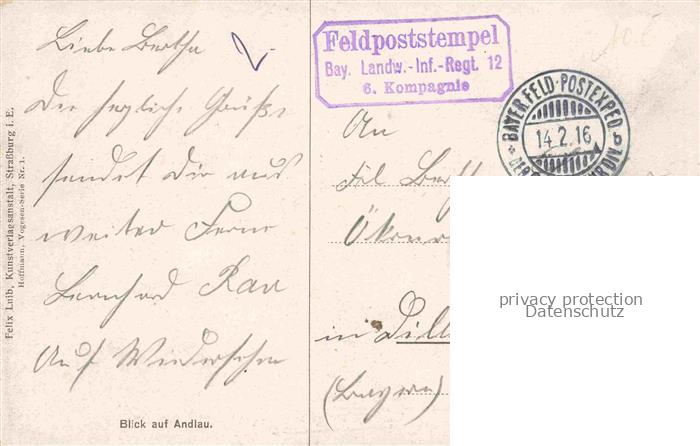 Liebe Bertha
Die herzliche Grüße
sendet Dir aus
weiter Ferne
Bernhard Rau
Auf Wiedersehen
Blick auf Andlau.
Felix Luib, Kunstverlagsanstalt, Straßburg i. E.
Hoffmann, Vogesen-Serie Nr. 1.
Feldpoststempel
Bay. Landw.-Inf.-Regt. 12
6. Kompagnie
BAYER. FELD-POSTEXPED.
14.2.16
An
in Dill
(Bayern)
privacy protection
Datenschutz